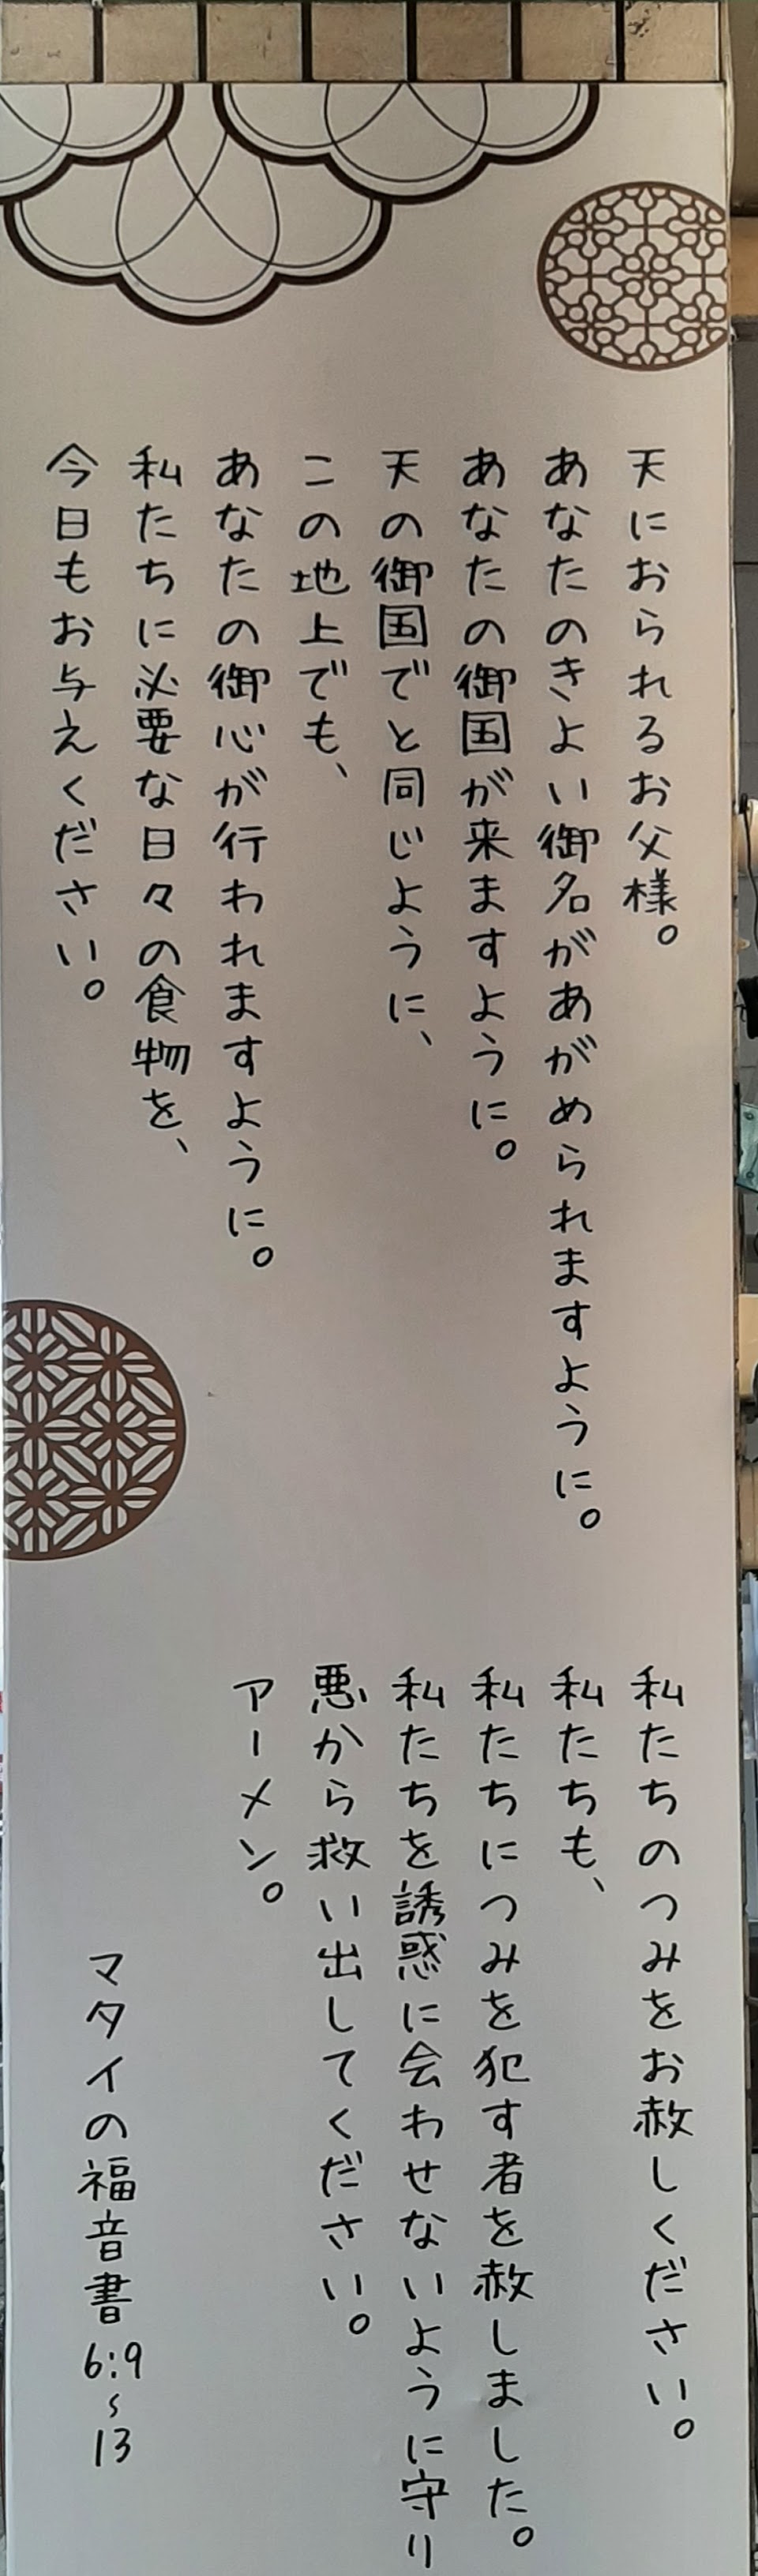 天におられるお父様。
あなたのきよい御名があがめられますように。
あなたの御国が来ますように。
天の御国でと同じように、
この地上でも、
あなたの御心が行われますように。
私たちに必要な日々の食物を、
今日もお与えください。
私たちのつみをお赦しください。
私たちも、
私たちにつみを犯す者を赦しました。
私たちを誘惑に会わせないように守り
悪から救い出してください。
アーメン。
マタイの福音書6:9~13